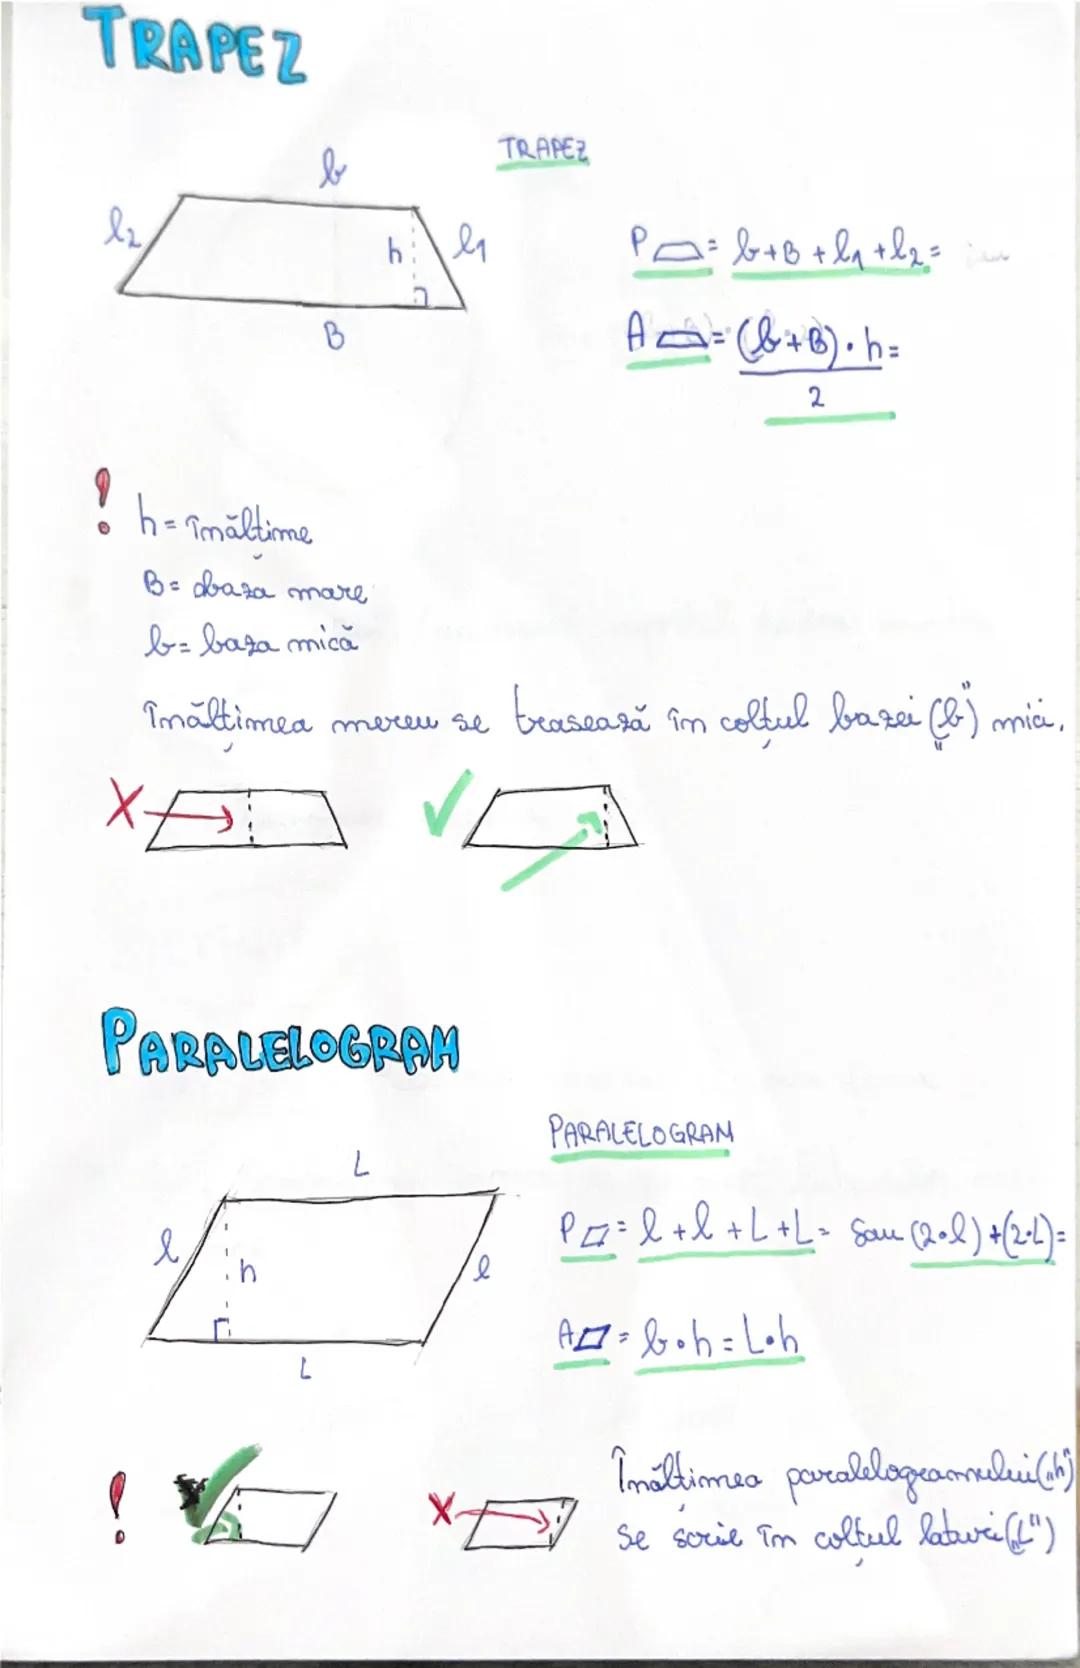 TRAPEZ
TRAPEZ
b
l2
h
l1
B
P = b+B+l1+l2=
A = (b+B)·h=
2
! h= înălțime
B= baza mare
b= baza mică
Înălțimea mereu se trasează în colțul bazei („b") mici.
X
PARALELOGRAM
PARALELOGRAM
L
l
h
l
L
P = l+l+L+L= sau (2·l)+(2·L)=
A = b·h=L·h
!
X
Înălțimea paralelogramului („h")
se scrie în colțul laturi („L")